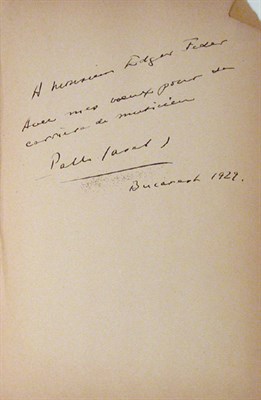 A Monsieur Edgar Feder
Avec mes vœux pour sa
carrière de musicien
Pablo Casals
Bucarest 1929.